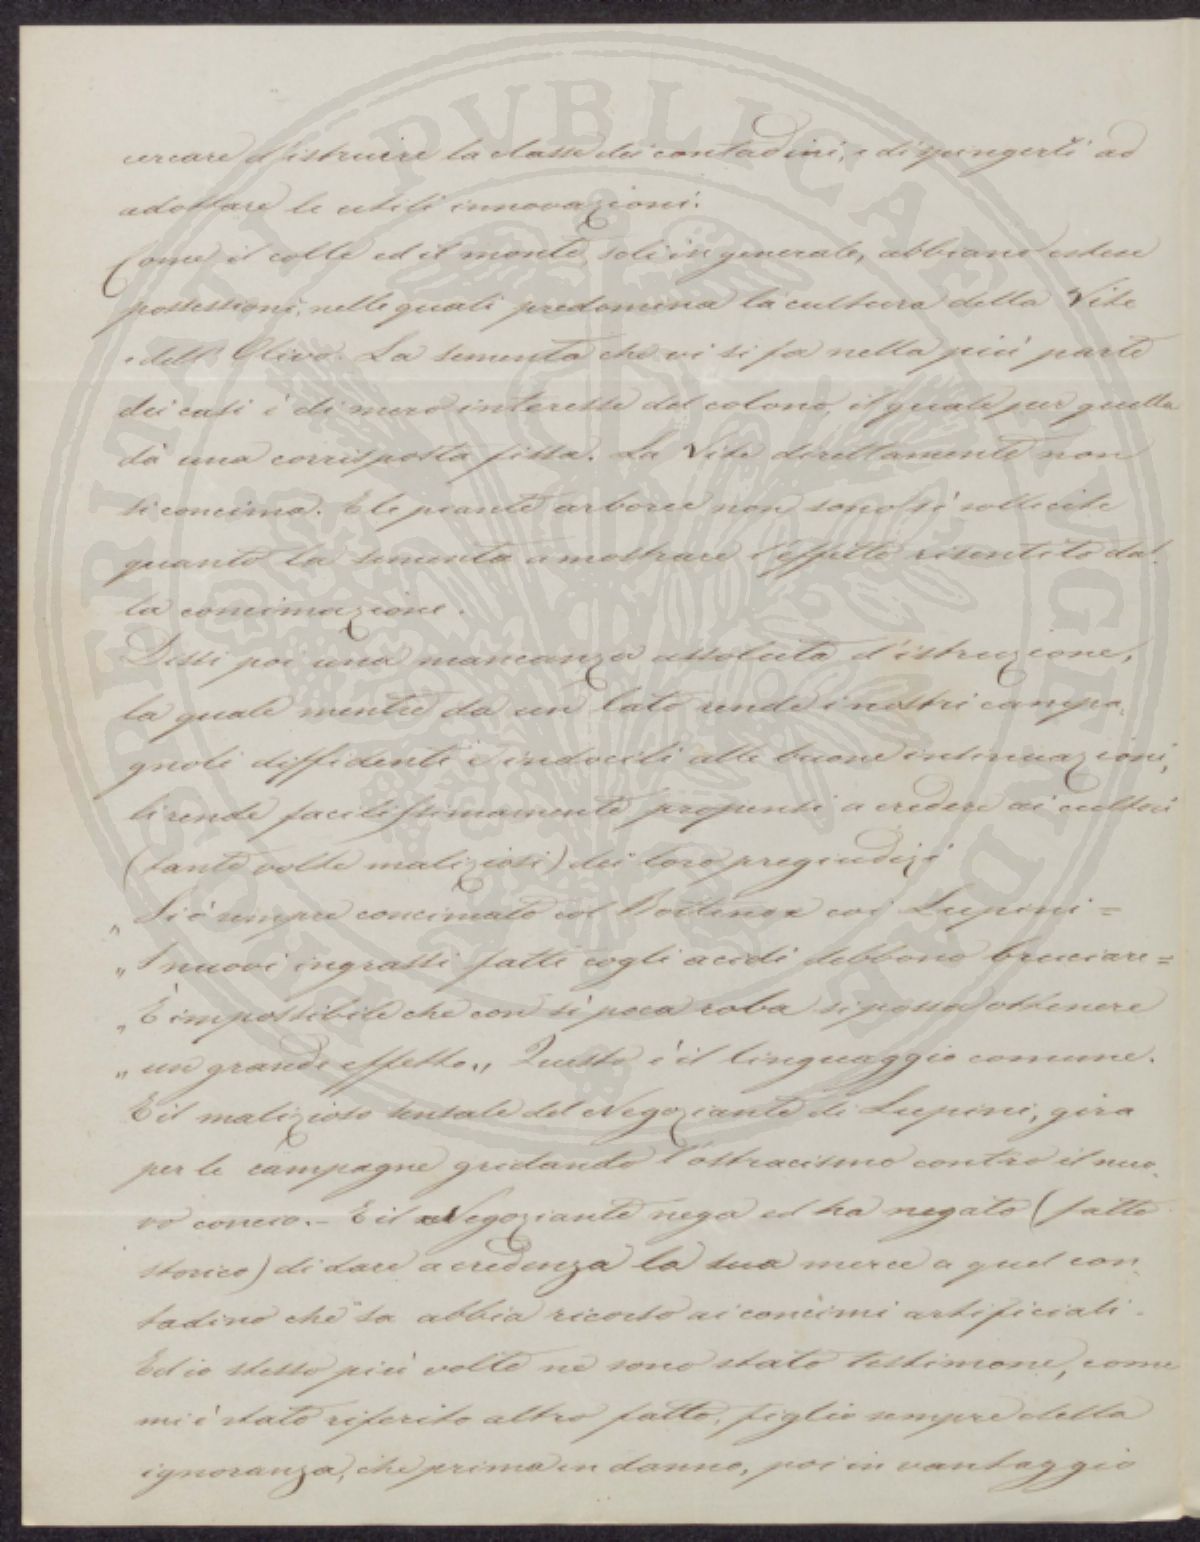 cercare d'istruire la classe dei contadini, e di spingerli ad
adottare le utili innovazioni.
Come il colle ed il monte, soli in generale, abbiano estese
possessioni, nelle quali predomina la cultura della Vite
e dell'Olivo. La sementa che vi si fa nella più parte
dei casi è di mero interesse del colono, il quale per quella
dà una corrisposta fissa. La Vite direttamente non
si concima. E le piante arboree non sono sì sollecite
quanto la sementa a mostrare l'effetto risentito dal
la concimazione.
Dissi poi una mancanza assoluta d'istruzione,
la quale mentre da un lato rende i nostri campa
gnoli diffidenti e indocili alle buone insinuazioni,
li rende facilissimamente propensi a credere ai cultori
(tante volte maliziosi) dei loro pregiudizi
„ Si è sempre concimato col Bottino e coi Lupini =
„ I nuovi ingrassi fatti cogli acidi debbono bruciare =
„ È impossibile che con sì poca roba si possa ottenere
„ un grande effetto „ Questo è il linguaggio comune.
E il malizioso sensale del Negoziante di Lupini, gira
per le campagne gridando l'ostracismo contro il nuo
vo concio. – E il Negoziante nega ed ha negato (fatto
storico) di dare a credenza la sua merce a quel con
tadino che sa abbia ricorso ai concimi artificiali.
Ed io stesso più volte ne sono stato testimone, come
mi è stato riferito altro fatto, figlio sempre della
ignoranza, che prima in danno, poi in vantaggio